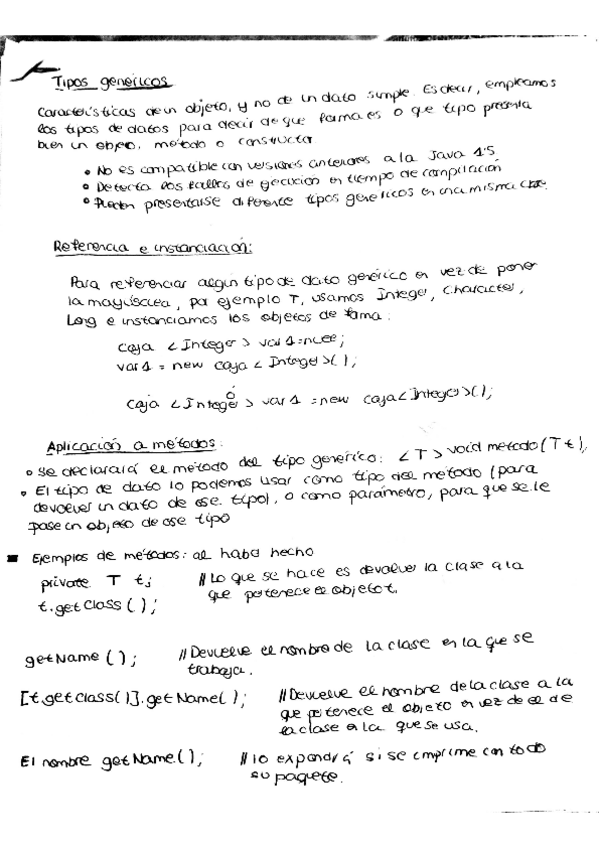 Tipos genéricos
Características de un objeto, y no de un dato simple. Es decir, empleamos
los tipos de datos para decir de que forma es o que tipo presenta
bien un objeto, método o constructor
• No es compatible con versiones anteriores a la Java 1.5
• Detecta los fallos de ejecución en tiempo de compilación
• Pueden presentarse diferente tipos genéricos en una misma clase.
Referencia e instanciación:
Para referenciar algún tipo de dato genérico en vez de poner
la mayúscula, por ejemplo T, usamos Integer, Character,
Long e instanciamos los objetos de forma:
caja < Integer > var 1 = null;
var 1 = new caja < Integer > ( );
ó
caja < Integer > var 1 = new caja < Integer > ( );
Aplicación a métodos:
• se declarará el método del tipo genérico: < T > void metodo ( T t ),
• El tipo de dato lo podemos usar como tipo del método (para
devolver un dato de ese tipo), o como parámetro, para que se le
pase un objeto de ese tipo
■ Ejemplos de métodos: al haber hecho
private T t; // Lo que se hace es devolver la clase a la
t.getClass ( ); que pertenece el objeto t.
getName ( ); // Devuelve el nombre de la clase en la que se
trabaja.
[t.getClass( )].getName( ); // Devuelve el nombre de la clase a la
que pertenece el objeto en vez de el de
la clase en la que se usa.
El nombre getName.( ); // lo expondrá si se imprime con todo
su paquete.